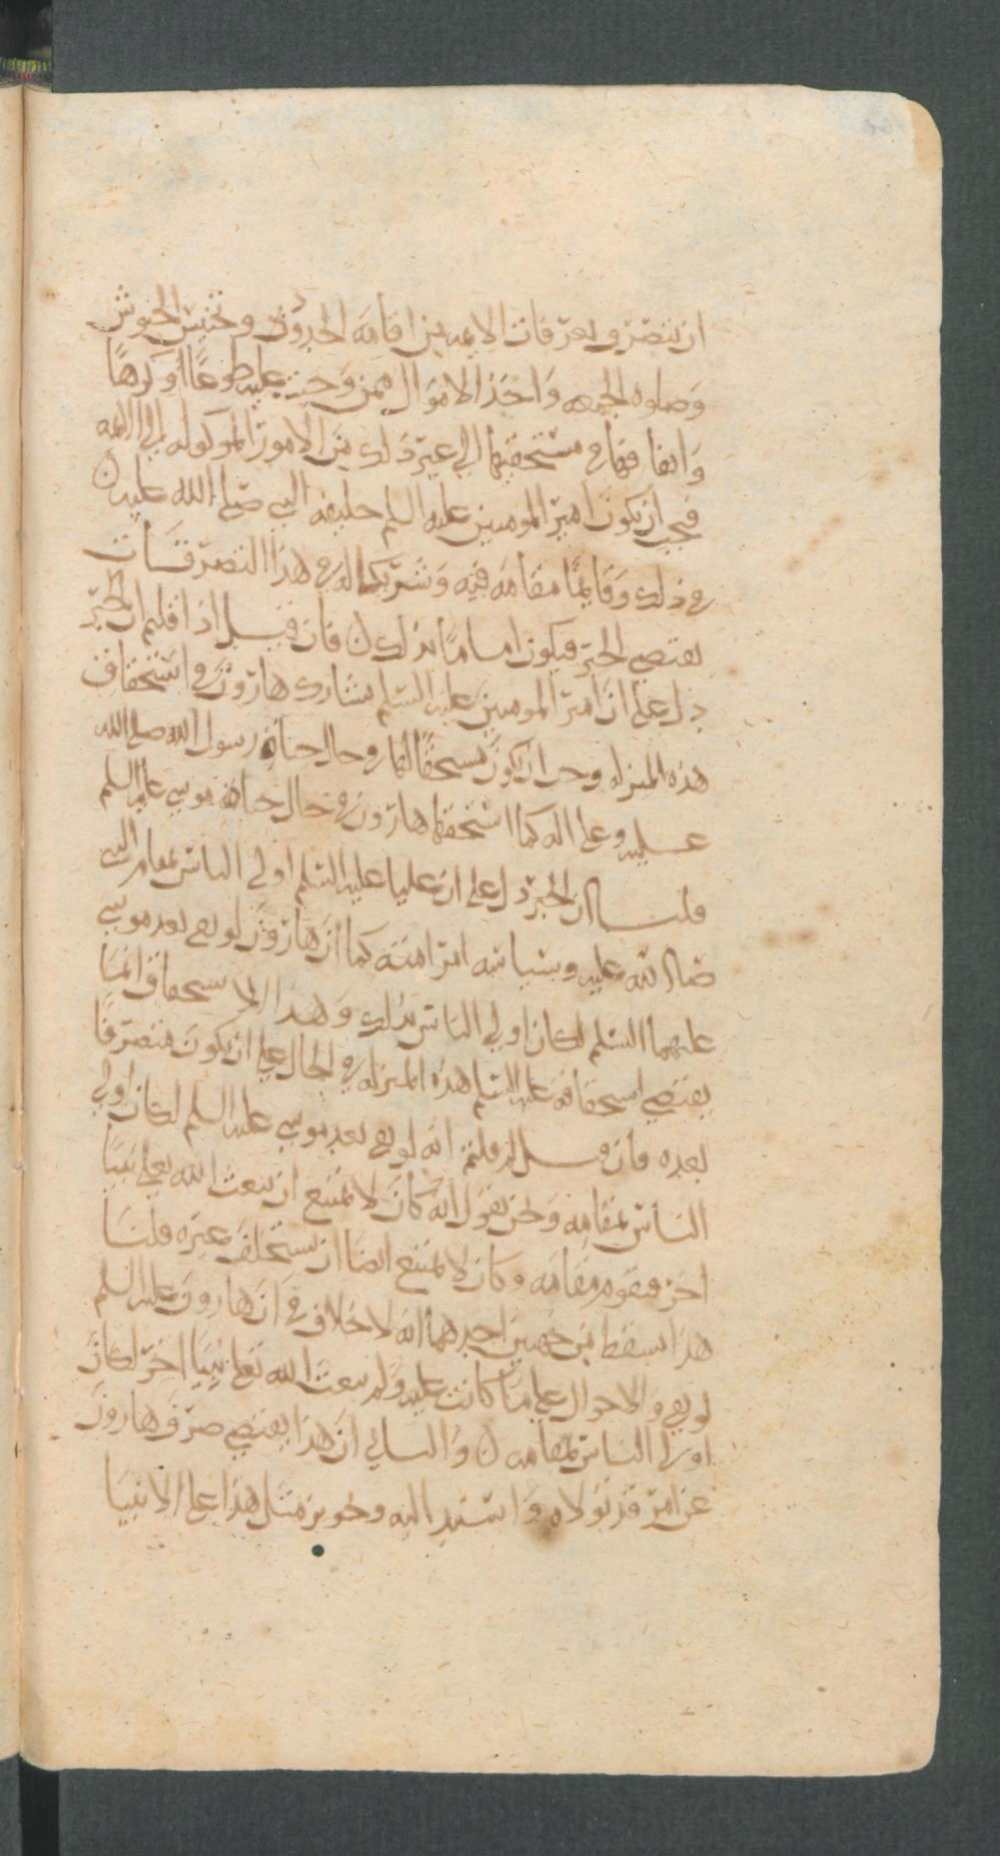 ان يتصرف تصرفات الايمه من اقامه الحدود وتجييش الجيوش
وصلوه الجمعه واخذ الاموال ممن وجبت عليه طوعا او كرها
وانفاقها في مستحقيها الي غير ذلك من الامور الموكوله الي الايمه
فيجب ان يكون امير المومنين عليه السلم خليفه النبي صلى الله عليه
في ذلك وقايما مقامه فيه وشريكا له في هذا التصرفات
يقتضي الخبر فيكون اماما بذلك فان قيل اذا قلتم ان الخبر
دل علي ان امير المومنين عليه السلم يشارك هارون في استحقاق
هذه المنزله وجب ان يكون مستحقا لها في حال حياة رسول الله صلى الله
عليه وعلى اله كما استحقها هارون في حال حياة موسي عليه السلم
قلنا ان الخبر دل علي ان عليا عليه السلم اولي الناس بمقام النبي
صلى الله عليه وبسياسه امر امته كما ان هارون لو بقي بعد موسي
عليهما السلم لكان اولي الناس بذلك وهذا الاستحقاق انما
يقتضي استحقاقه عليه السلم هذه المنزله في الحال علي ان يكون متصرفا
بعده فان قيل لم قلتم انه لو بقي بعد موسي عليه السلم لكان اولي
الناس بمقامه ونحن نقول انه كان لا يمتنع ان يبعث الله تعلي نبيا
اخر فيقوم مقامه وكان لا يمتنع ايضا ان يستخلف غيره قلنا
هذا يسقط من وجهين احدهما انه لا خلاف في ان هارون عليه السلم
لو بقي والاحوال علي ما كانت عليه ولم يبعث الله تعلي نبيا اخر لكان
اولي الناس بمقامه والثاني ان هذا يقتضي صرف هارون
عن امر قد تولاه واستند اليه وتجويز مثل هذا علي الانبيا